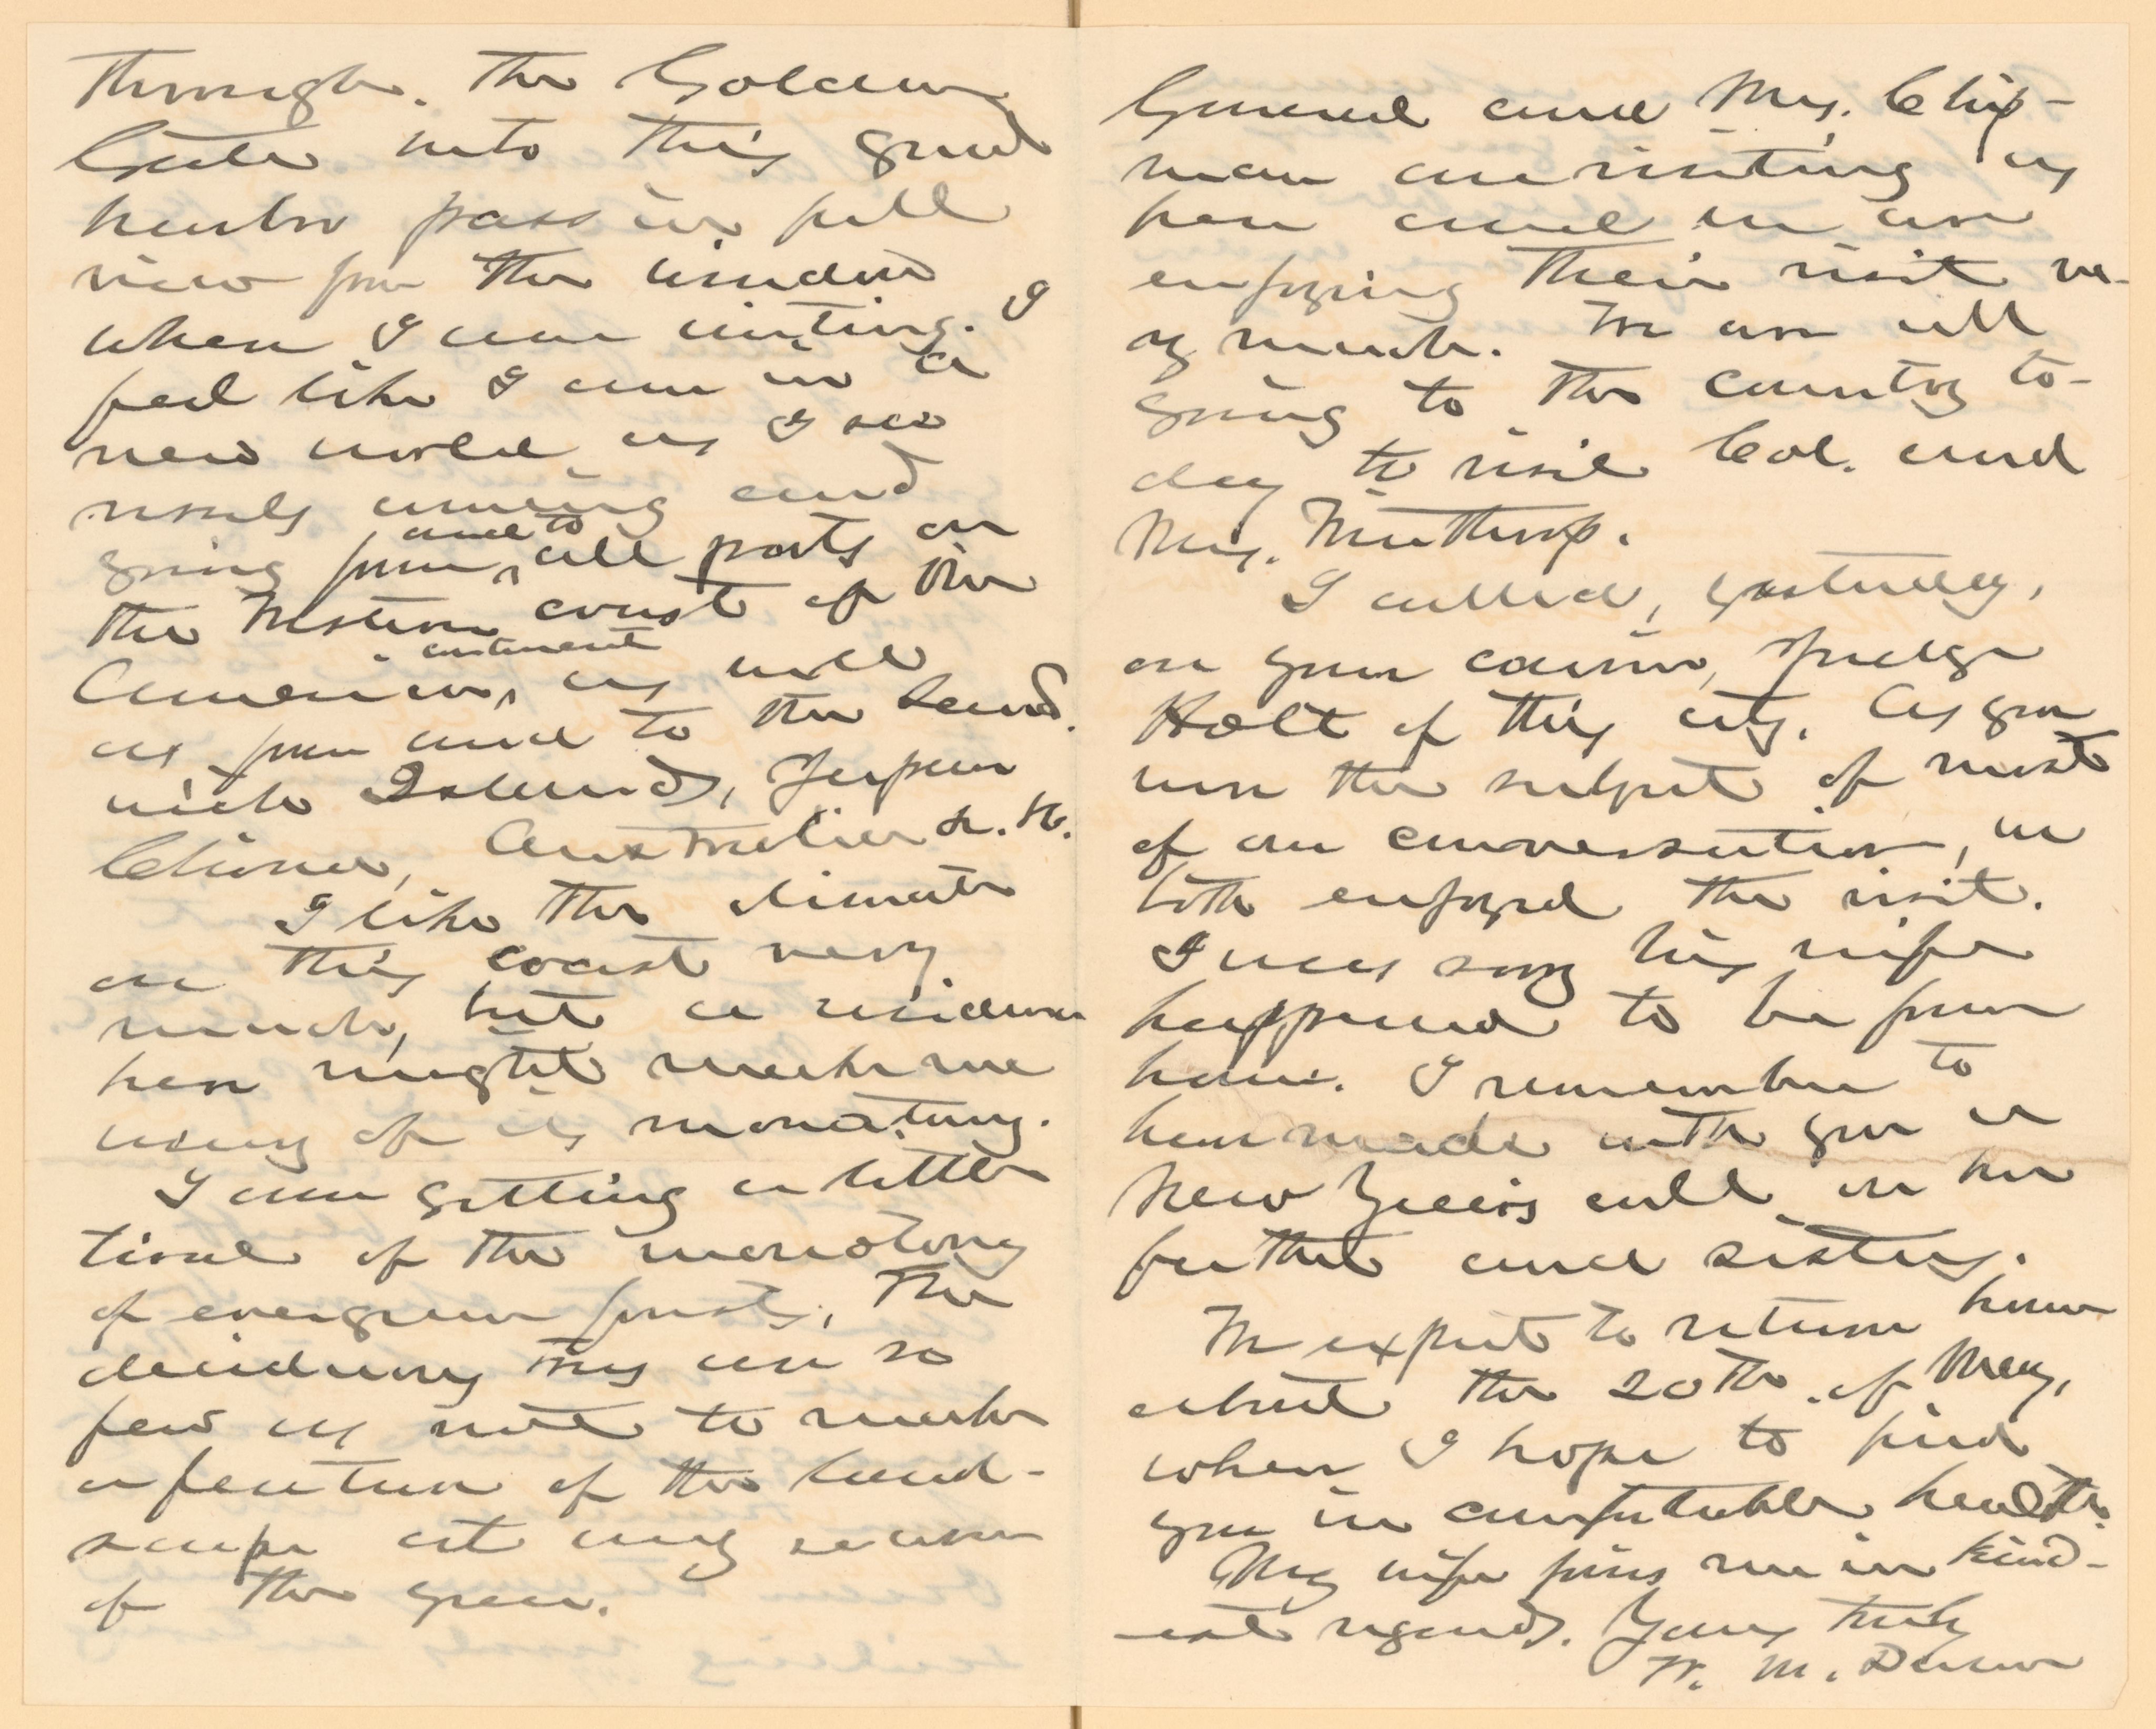 through the Golden
Gate into this grand
harbor pass in full
view from the window
when I am writing. I
feel like I am in a
new world as I see
vessels coming and
going from and to all ports on
the Western coast of the
American continent, as well
as from and to the Sand-
wich Islands, Japan
China, Australia &c. &c.
I like the climate
on this coast very
much, but a residence
here might make me
weary of its monotony.
I am getting a little
tired of the monotony
of evergreen forests, the
deciduous trees are so
few as not to make
a feature of the land-
scape at any season
of the year.
General and Mrs. Chip-
man are visiting us
here and we are
enjoying their visit ve-
ry much. We are all
going to the country to-
day to visit Col. and
Mrs. Winthrop.
I called, yesterday,
on your cousin, Judge
Holt of this city. As you
were the subject of most
of our conversation, we
both enjoyed the visit.
I was sorry his wife
happened to be from
home. I remember to
have made with you a
New Years call on her
father and sisters.
We expect to return home
about the 20th of May,
when I hope to find
you in comfortable health.
My wife joins me in kind-
est regards. Yours truly
W. M.